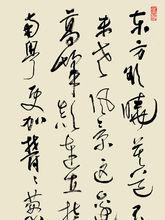 东方欲晓莫道
未老风景这边
高峰颠连直接
南粤更加郁郁葱